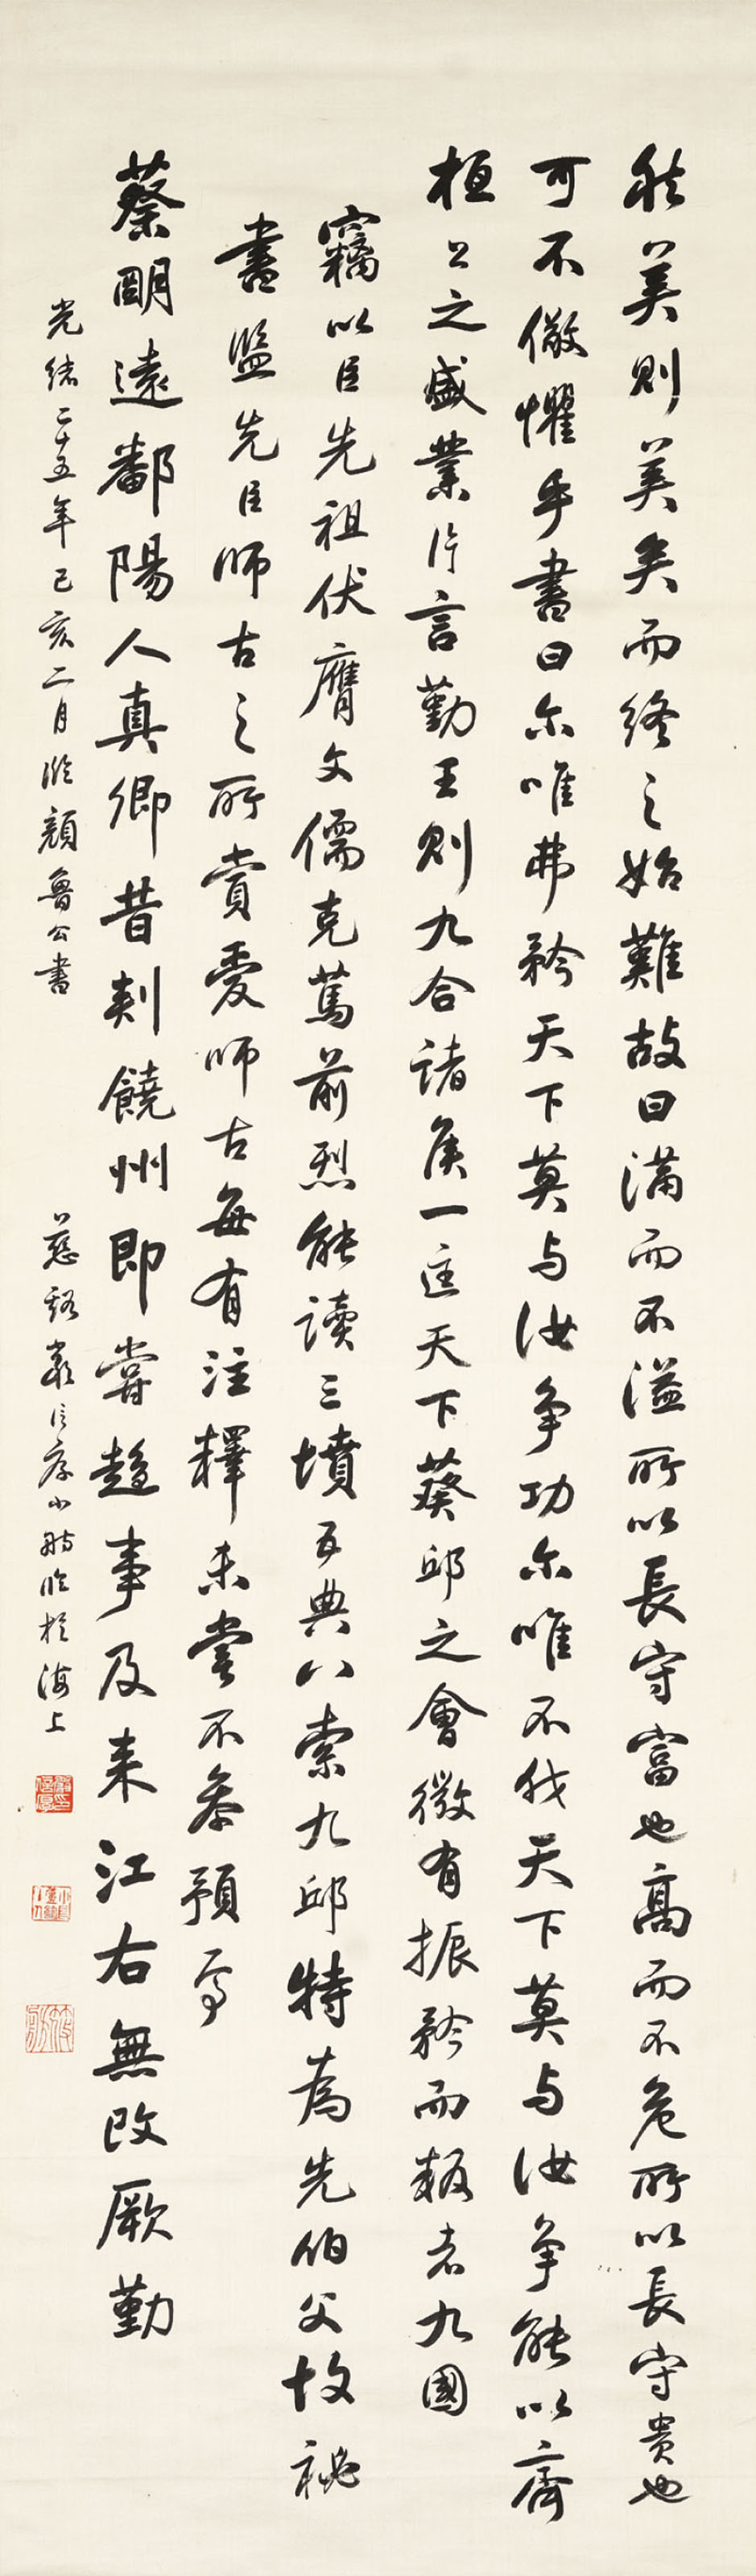 然美則美矣而終之始難故曰滿而不溢所以長守富也高而不危所以長守貴也
可不儆懼乎書曰尔唯弗矜天下莫与汝争功尔唯不伐天下莫与汝争能以齊
桓公之盛業片言勤王則九合諸侯一匡天下葵邱之會微有振矜而叛者九國
竊以臣先祖伏膺文儒克篤前烈能讀三墳五典八索九邱特為先伯父故祕
書監先臣師古之所賞愛師古每有注釋未嘗不參預焉
蔡明遠鄱陽人真卿昔刺饒州即嘗趨事及来江右無改厥勤
光緒二十五年己亥二月臨顏魯公書
慈谿嚴信厚小舫臨於海上
嚴印信厚